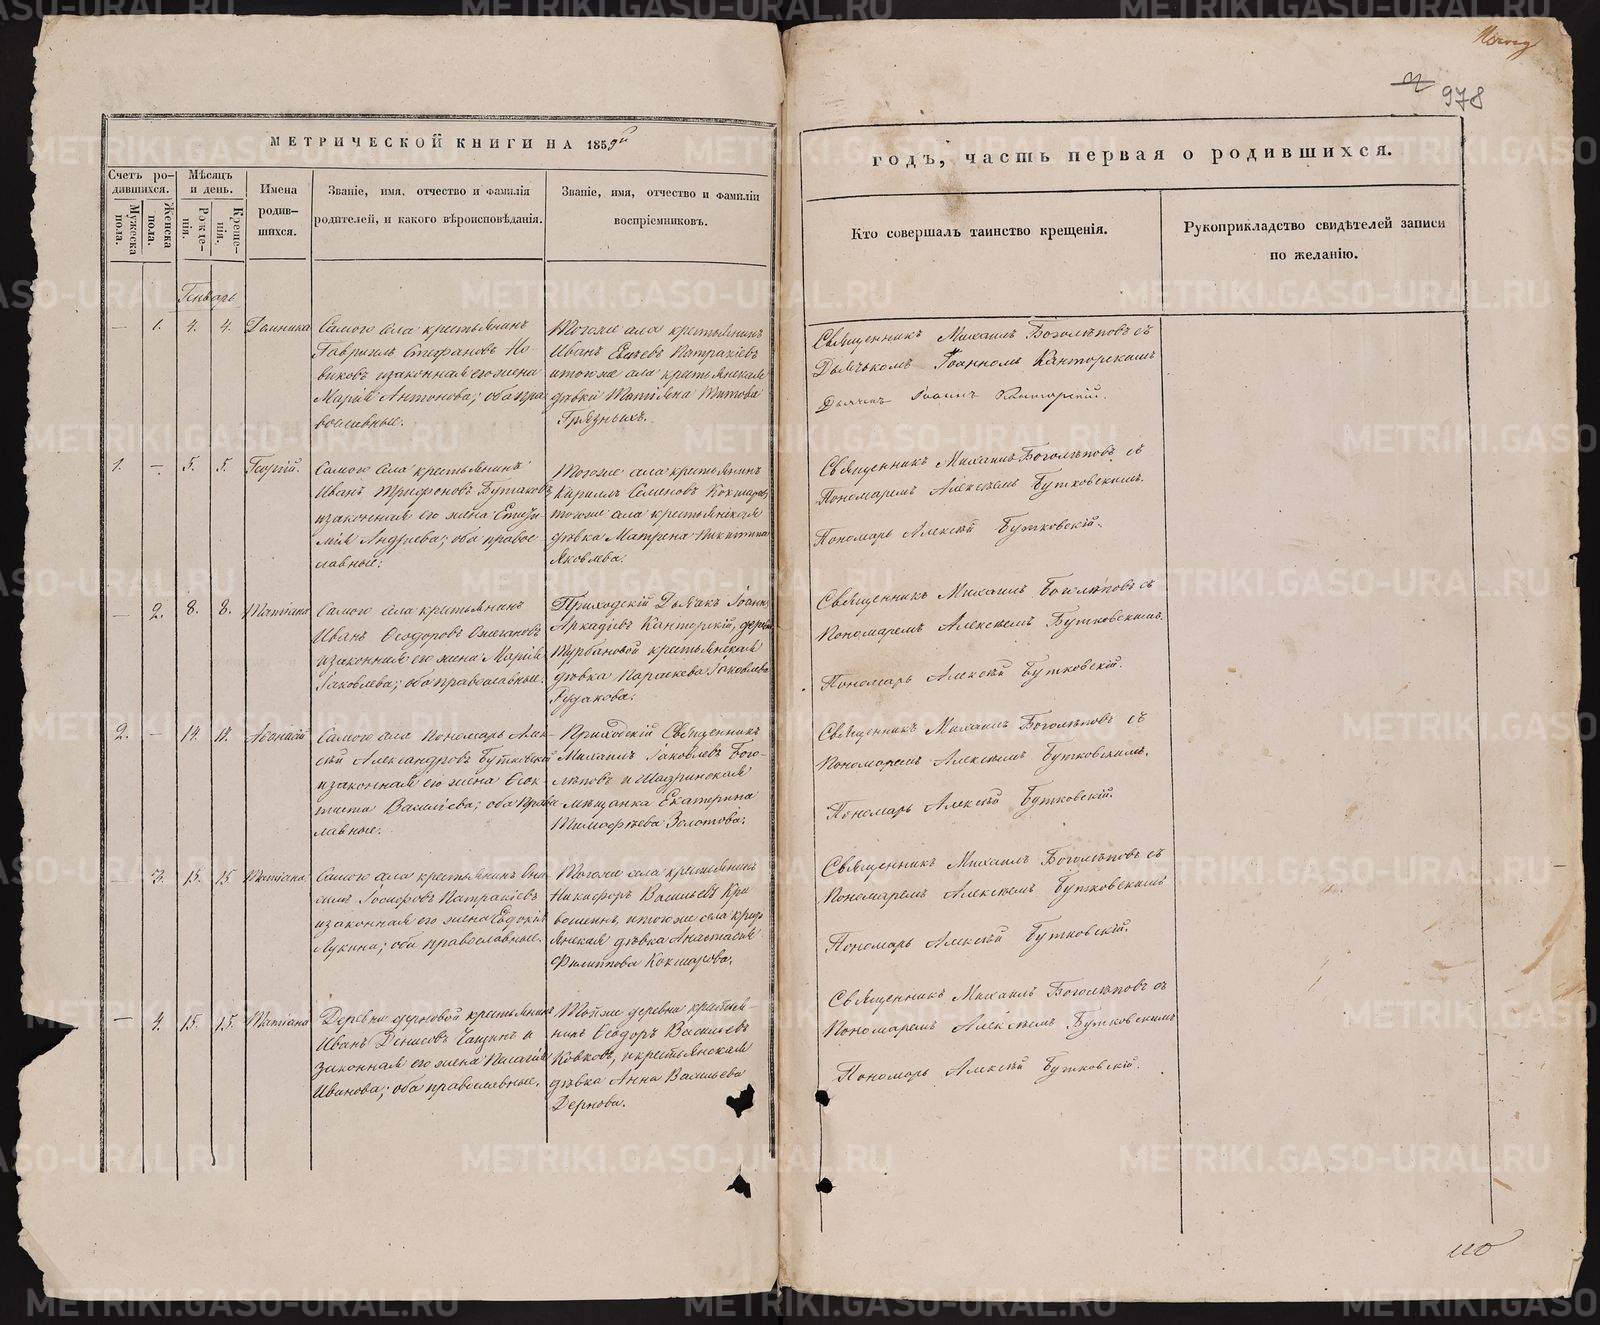 978
МЕТРИЧЕСКОЙ КНИГИ НА 1859й
годъ, часть первая о родившихся.
Счетъ ро-
дившихся.
Мужеска
пола.
Женска
пола.
Мѣсяцъ
и день.
Рожде-
нія.
Креще-
нія.
Имена
родив-
шихся.
Званіе, имя, отчество и фамилія
родителей, и какого вѣроисповѣданія.
Званіе, имя, отчество и фамиліи
воспріемниковъ.
Кто совершалъ таинство крещенія.
Рукоприкладство свидѣтелей записи
по желанію.
Генварь
— 1. 4. 4. Домника
Самого села крестьянинъ
Гавріилъ Стефановъ Но-
виковъ и законная его жена
Марія Антонова; оба пра
вославные.
Тогоже села крестьянинъ
Иванъ Патракіевъ
и тогоже села крестьянская
дѣвка Татіяна Титова
Грязныхъ.
Священникъ Михаилъ Боголѣповъ съ
Дьячькомъ Іоанномъ Канторскимъ
Дьячекъ Іоаннъ Канторскій.
1. — 5. 5. Георгій.
Самого села крестьянинъ
Иванъ Трифоновъ Бутаковъ
и законная его жена
Андреева; оба правос
лавные.
Тогоже села крестьянинъ
Кириллъ Семеновъ Кокшаровъ
тогоже села крестьянская
дѣвка Матрена Никитина
Яковлева.
Священникъ Михаилъ Боголѣповъ съ
Пономаремъ Алексѣемъ Бутковскимъ.
Пономарь Алексѣй Бутковскій.
— 2. 8. 8. Татіана
Самого села крестьянинъ
Иванъ Ѳеодоровъ
и законная его жена Марія
Іаковлева; оба православные.
Приходскій Дьячекъ Іоаннъ
Аркадіевъ Канторскій, деревни
Турбановой крестьянская
дѣвка Параскева Іаковлева
Рудакова.
Священникъ Михаилъ Боголѣповъ съ
Пономаремъ Алексѣемъ Бутковскимъ.
Пономарь Алексѣй Бутковскій.
2. — 14. 14. Аѳонасій
Самого села Пономарь Алек-
сѣй Александровъ Бутковскій
и законная его жена Ѳеок-
тиста Васильева; оба право
лавные.
Приходскій Священникъ
Михаилъ Іаковлевъ Бого-
лѣповъ и Шадринская
мѣщанка Екатерина
Тимофѣева Золотова.
Священникъ Михаилъ Боголѣповъ съ
Пономаремъ Алексѣемъ Бутковскимъ.
Пономарь Алексѣй Бутковскій.
— 3. 15. 15 Татіана.
Самого села крестьянинъ Они
симъ Іосифовъ Патракіевъ
и законная его жена Евдокія
Лукина; оба православные.
Тогоже села крестьянинъ
Никифоръ Васильевъ Кри
вошеинъ, и тогоже села крест
янская дѣвка Анастасія
Филиппова Кокшарова.
Священникъ Михаилъ Боголѣповъ съ
Пономаремъ Алексѣемъ Бутковскимъ
Пономарь Алексѣй Бутковскій.
— 4. 15. 15. Татіана
Деревни Дерновой крестьянинъ
Иванъ Денисовъ и
законная его жена Пелагія
Иванова; оба православные.
Тойже деревни крестья-
нинъ Ѳеодоръ Васильевъ
Ковковъ, и крестьянская
дѣвка Анна Васильева
Дернова.
Священникъ Михаилъ Боголѣповъ съ
Пономаремъ Алексѣемъ Бутковскимъ
Пономарь Алексѣй Бутковскій.
METRIKI.GASO-URAL.RU